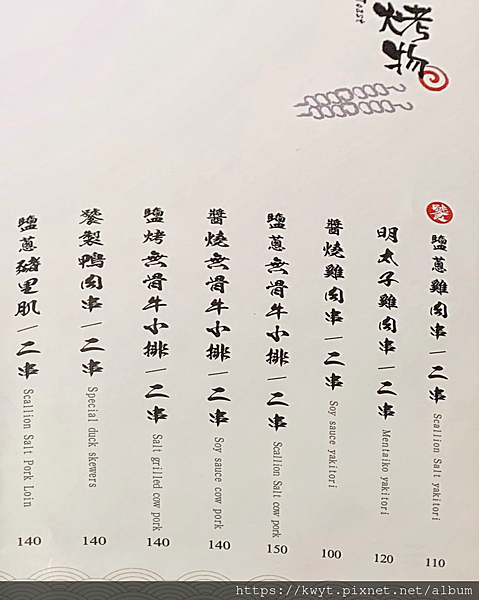 烤物
Toast
饕
鹽蔥雞肉串|二串 Scallion Salt yakitori 110
明太子雞肉串|二串 Mentaiko yakitori 120
醬燒雞肉串|二串 Soy sauce yakitori 100
鹽蔥無骨牛小排|二串 Scallion Salt cow pork 150
醬燒無骨牛小排|二串 Soy sauce cow pork 140
鹽烤無骨牛小排|二串 Salt grilled cow pork 140
饕製鴨肉串|二串 Special duck skewers 140
鹽蔥豬里肌|二串 Scallion Salt Pork Loin 140
https://kwyt.pixnet.net/album